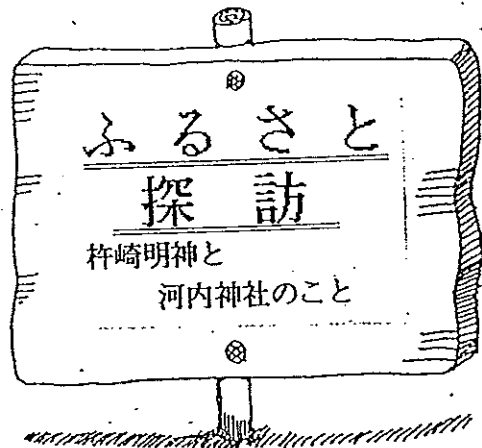 ふるさと
探訪
杵崎明神と
河内神社のこと